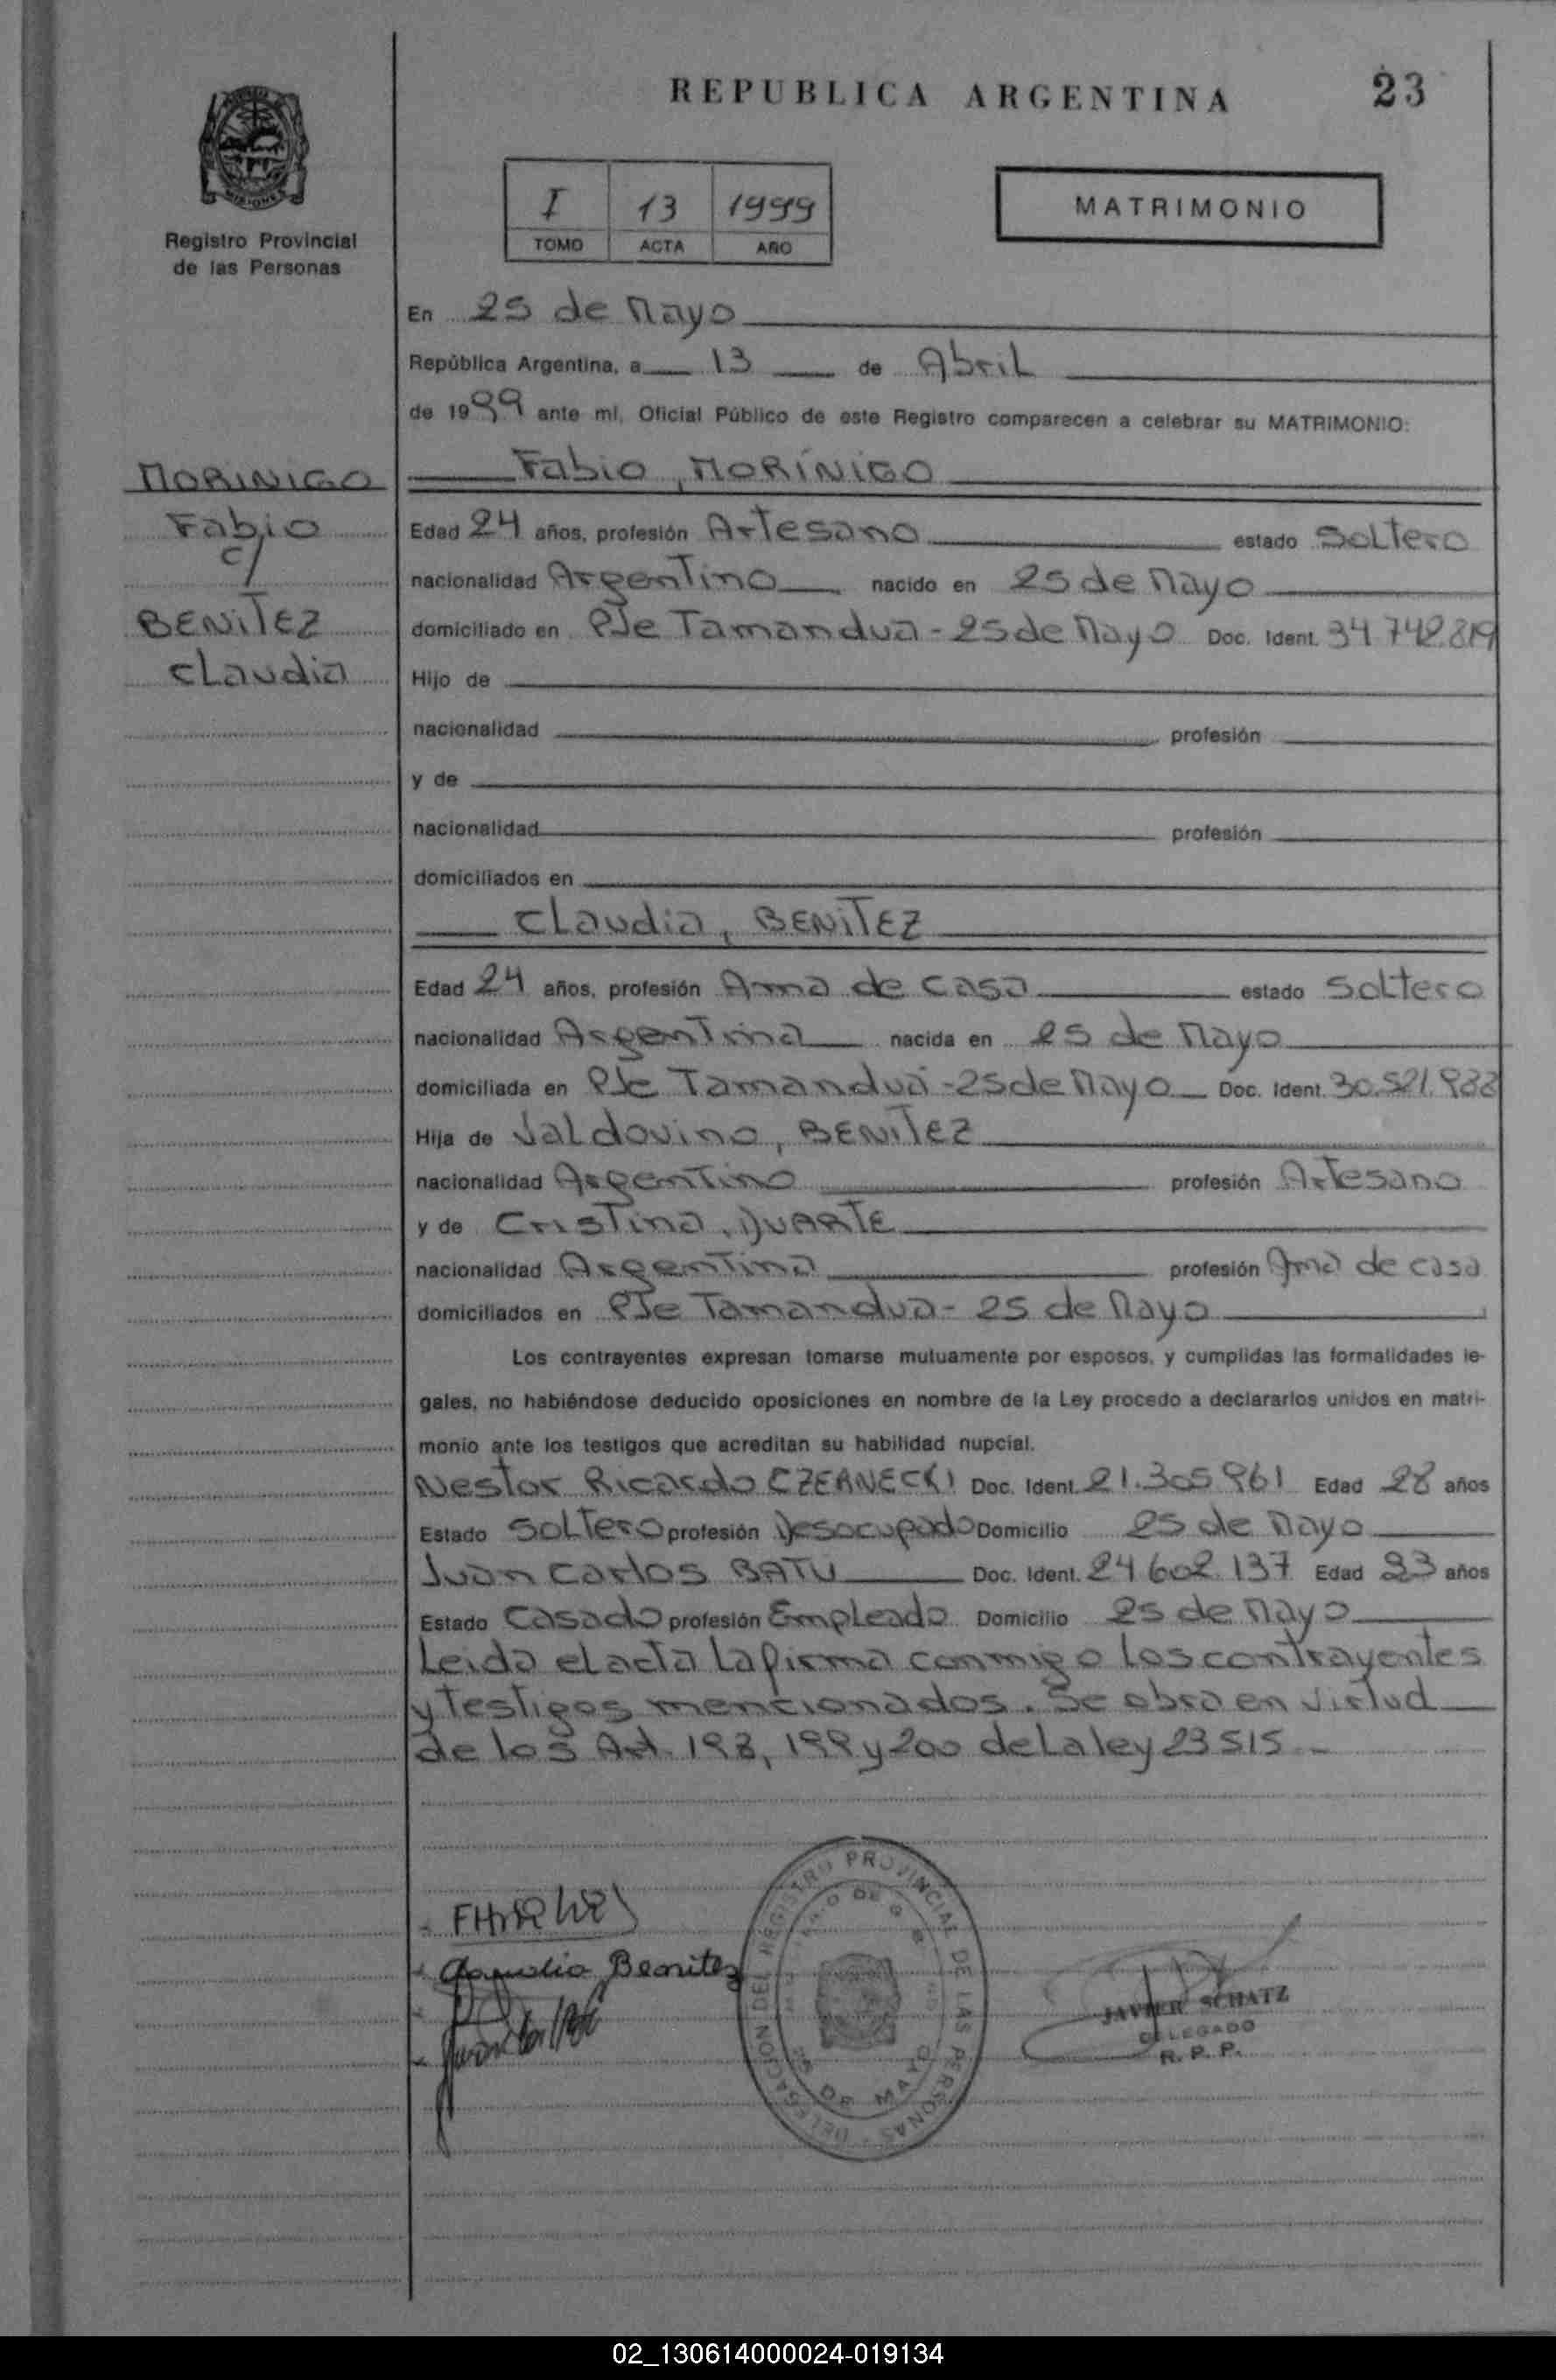 REPUBLICA ARGENTINA
23
MISIONES
Registro Provincial
de las Personas
I 13 1999
TOMO ACTA AÑO
MATRIMONIO
En 25 de Mayo
República Argentina, a 13 de Abril
de 1999 ante mi, Oficial Público de este Registro comparecen a celebrar su MATRIMONIO:
MORINIGO
Fabio
c/
BENITEZ
Claudia
Fabio, MORÍNIGO
Edad 24 años, profesión Artesano estado Soltero
nacionalidad Argentino nacido en 25 de Mayo
domiciliado en Pje Tamandua - 25 de Mayo Doc. Ident. 34 742.819
Hijo de
nacionalidad profesión
y de
nacionalidad profesión
domiciliados en
Claudia, BENITEZ
Edad 24 años, profesión Ama de casa estado Soltero
nacionalidad Argentina nacida en 25 de Mayo
domiciliada en Pje Tamandua - 25 de Mayo Doc. Ident. 30.521.988
Hija de Valdovino, BENITEZ
nacionalidad Argentino profesión Artesano
y de Cristina, DUARTE
nacionalidad Argentina profesión Ama de casa
domiciliados en Pje Tamandua - 25 de Mayo
Los contrayentes expresan tomarse mutuamente por esposos, y cumplidas las formalidades le-
gales, no habiéndose deducido oposiciones en nombre de la Ley procedo a declararlos unidos en matri-
monio ante los testigos que acreditan su habilidad nupcial.
Nestor Ricardo CZERNECKI Doc. Ident. 21.305 961 Edad 28 años
Estado Soltero profesión Desocupado Domicilio 25 de Mayo
Juan Carlos BATU Doc. Ident. 24 602 137 Edad 23 años
Estado Casado profesión Empleado Domicilio 25 de Mayo
Leida el acta la firma conmigo los contrayentes
y testigos mencionados. Se obra en virtud
de los Art. 198, 199 y 200 de la ley 23515.-
Claudia Benitez
DELEGACION DEL REGISTRO PROVINCIAL DE LAS PERSONAS
25 DE MAYO
JAVIER SCHATZ
DELEGADO
R. P. P.
02_130614000024-019134